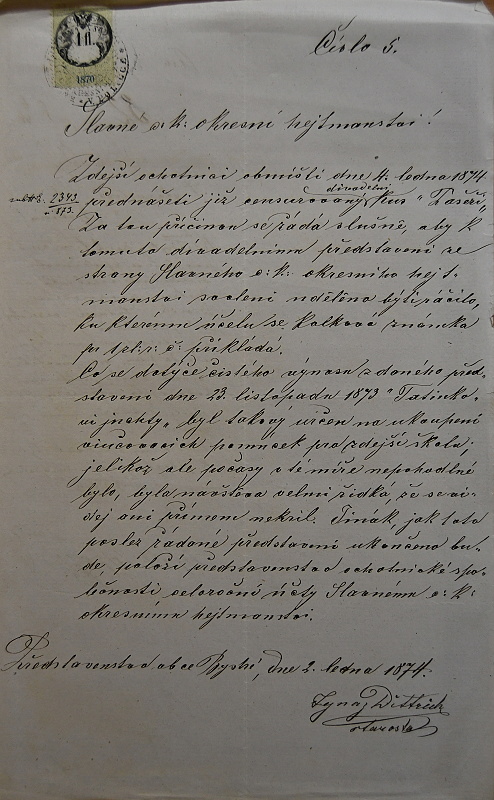 1 fl.
1870
Číslo 5.
Slavné c: k: okresní hejtmanství!
Zdejší ochotníci obmýšlí dne 4. ledna 1874
sub N: E. 2343/1873. přednášeti již censurovaný divadelní kus "Tašeři"
Za tou příčinou se žádá slušně, aby k
tomuto divadelnímu představení ze
strany Slavného c: k: okresního hejt-
manství svolení uděleno býti ráčilo,
ku kterému účelu se kolková známka
pr 1 zl: r: č: přikládá.
Co se dotýče čistého výnosu z daného před-
stavení dne 23. listopadu 1873 "Tatínko-
vi juchty" byl takový určen na zakoupení
vyučovacích pomůcek pro zdejší školu;
jelikož ale počasy v té míře nepohodlné
bylo, byla návštěva velmi řídká, že se vý-
dej ani příjmem nekril. Jinák, jak toto
posléz žádané představení ukončeno bu-
de, položí představenstvo ochotnické spo-
lečnosti celoroční účty Slavnému c: k:
okresnímu hejtmanství.
Představenstvo obce Bystré, dne 2. ledna 1874.
Ignaz Dittrich
starosta